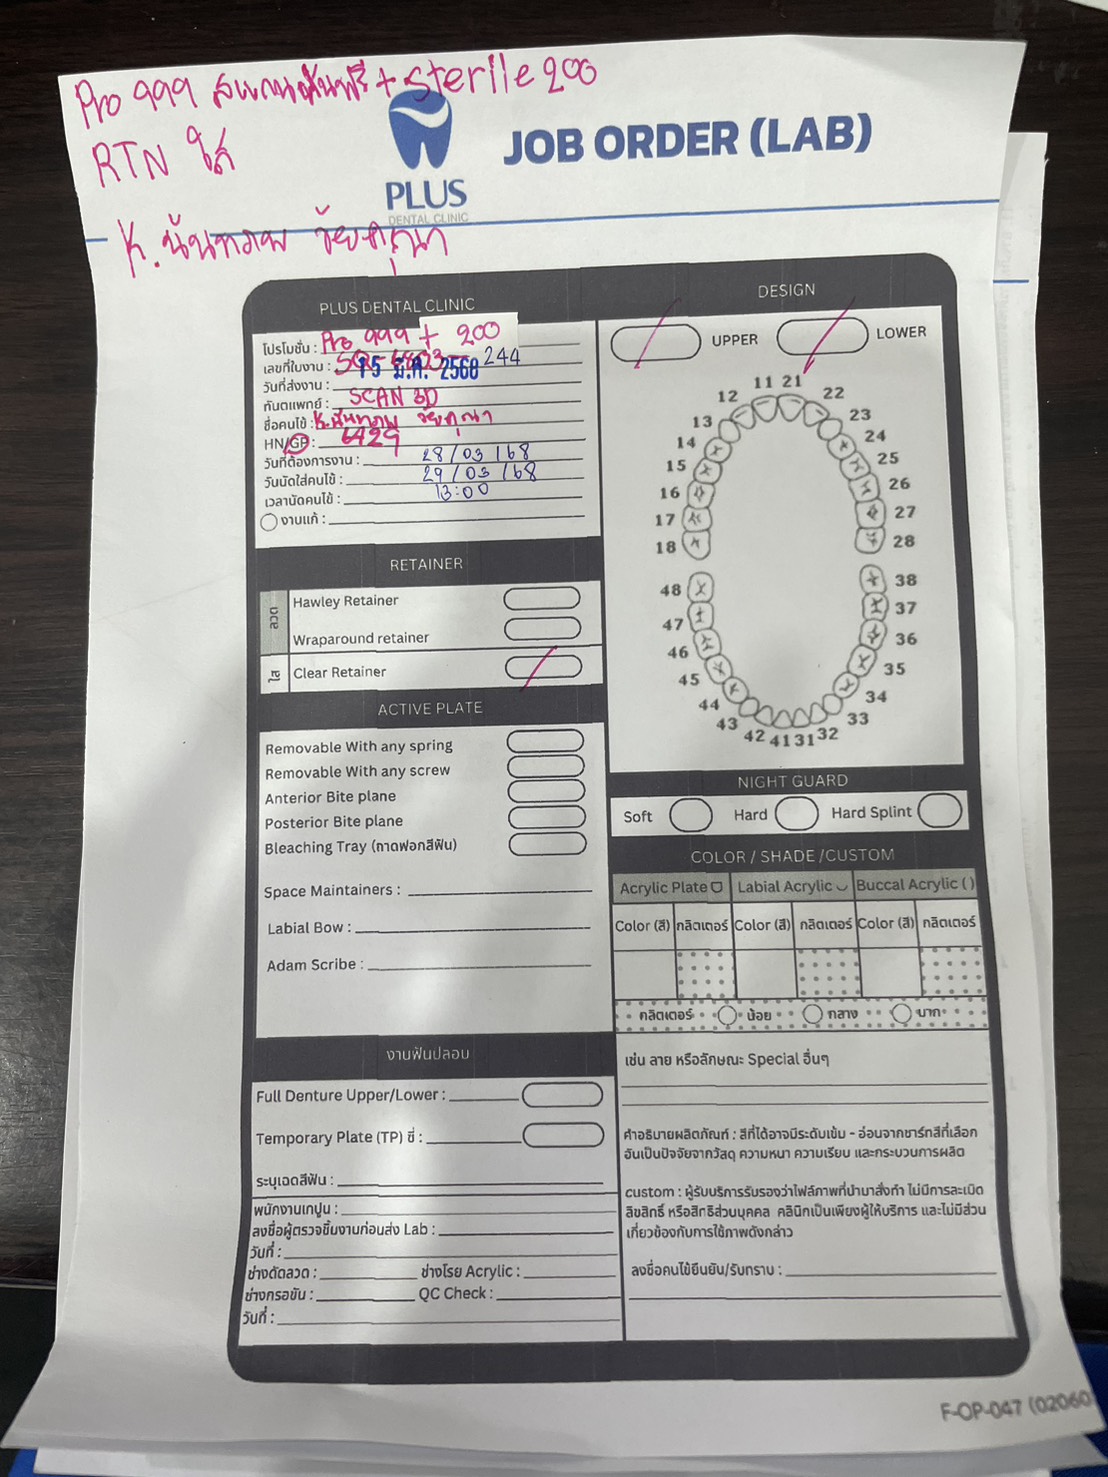 Pro 999 สแกนฟันฟรี + Sterile 200
RTN ใส
K. นันทภพ ชัยคุณา
PLUS
DENTAL CLINIC
JOB ORDER (LAB)
PLUS DENTAL CLINIC
โปรโมชั่น : Pro 999 + 200
เลขที่ใบงาน : 244
วันที่ส่งงาน : 15 มี.ค. 2568
ทันตแพทย์ : SCAN 3D
ชื่อคนไข้ : K. นันทภพ ชัยคุณา
HN/GP : 6429
วันที่ต้องการงาน : 28/03/68
วันนัดใส่คนไข้ : 29/03/68
เวลานัดคนไข้ : 13:00
งานแก้ :
RETAINER
ลวด
Hawley Retainer
Wraparound retainer
ใส
Clear Retainer
ACTIVE PLATE
Removable With any spring
Removable With any screw
Anterior Bite plane
Posterior Bite plane
Bleaching Tray (ถาดฟอกสีฟัน)
Space Maintainers :
Labial Bow :
Adam Scribe :
งานฟันปลอม
Full Denture Upper/Lower :
Temporary Plate (TP) ซี่ :
ระบุเฉดสีฟัน :
พนักงานเทปูน :
ลงชื่อผู้ตรวจชิ้นงานก่อนส่ง Lab :
วันที่ :
ช่างดัดลวด : ช่างโรย Acrylic :
ช่างกรอขัน : QC Check :
วันที่ :
DESIGN
UPPER LOWER
11 21
12 22
13 23
14 24
15 25
16 26
17 27
18 28
48 38
47 37
46 36
45 35
44 34
43 33
42 41 31 32
NIGHT GUARD
Soft Hard Hard Splint
COLOR / SHADE /CUSTOM
Acrylic Plate Labial Acrylic Buccal Acrylic ( )
Color (สี) กลิตเตอร์ Color (สี) กลิตเตอร์ Color (สี) กลิตเตอร์
กลิตเตอร์ น้อย กลาง มาก
เช่น ลาย หรือลักษณะ Special อื่นๆ
คำอธิบายผลิตภัณฑ์ : สีที่ได้อาจมีระดับเข้ม - อ่อนจากชาร์ทสีที่เลือก
อันเป็นปัจจัยจากวัสดุ ความหนา ความเรียบ และกระบวนการผลิต
custom : ผู้รับบริการรับรองว่าไฟล์ภาพที่นำมาสั่งทำ ไม่มีการละเมิด
ลิขสิทธิ์ หรือสิทธิส่วนบุคคล คลินิกเป็นเพียงผู้ให้บริการ และไม่มีส่วน
เกี่ยวข้องกับการใช้ภาพดังกล่าว
ลงชื่อคนไข้ยืนยัน/รับทราบ :
F-OP-047 (02060